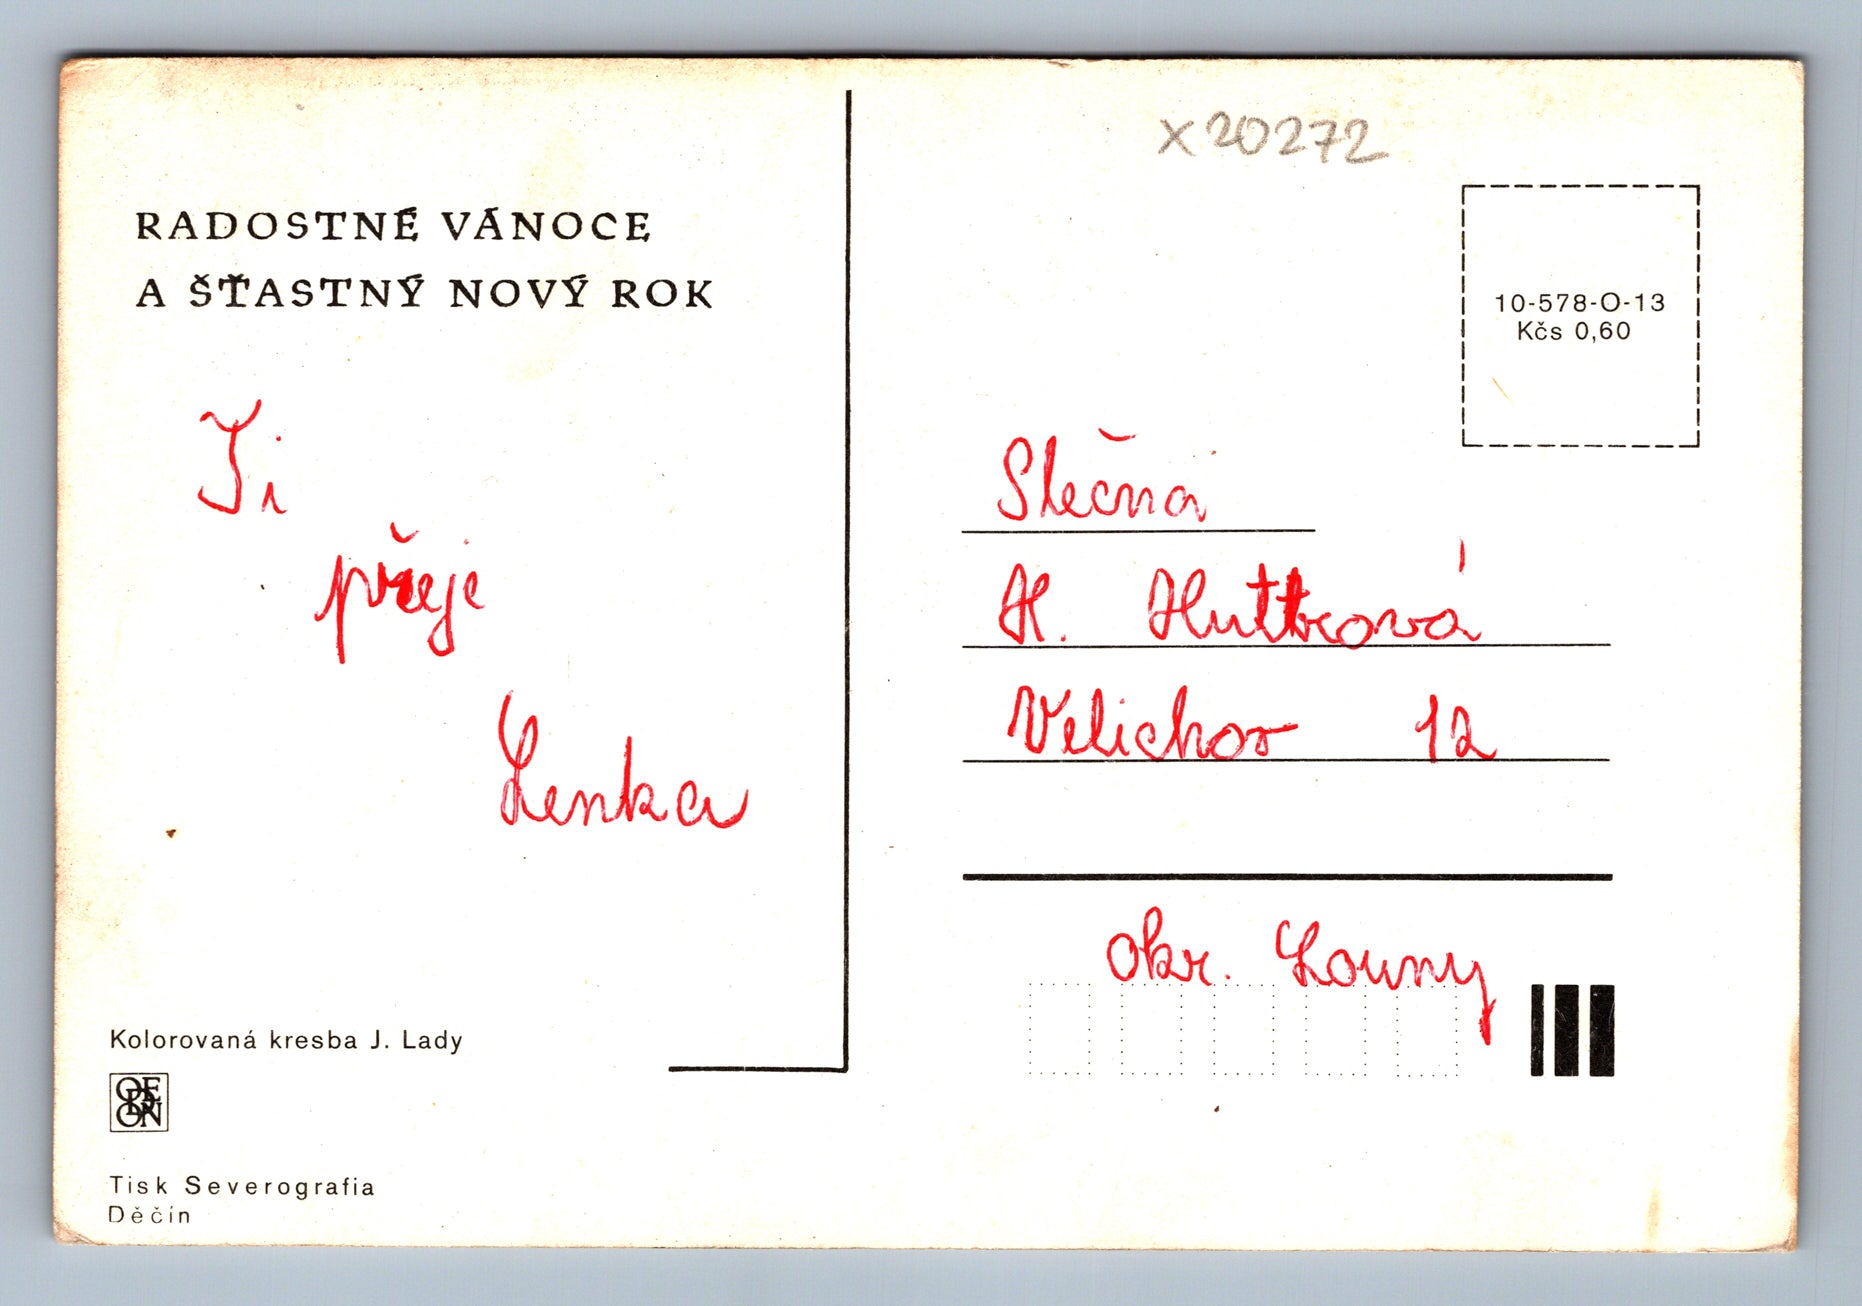 X20272
RADOSTNÉ VÁNOCE
A ŠŤASTNÝ NOVÝ ROK
Ti
přeje
Lenka
Kolorovaná kresba J. Lady
ODEON
Tisk Severografia
Děčín
10-578-O-13
Kčs 0,60
Slečna
H. Huttrová
Velichov 12
okr. Louny